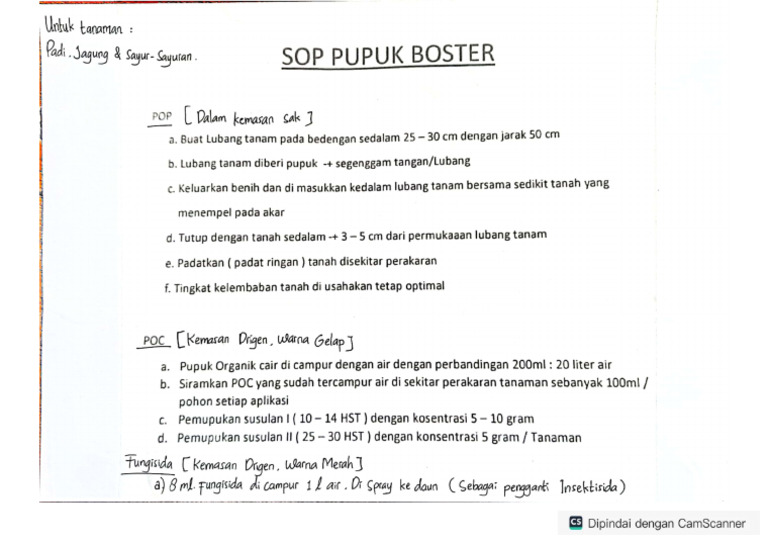 Untuk tanaman :
Padi, Jagung & Sayur-Sayuran.
SOP PUPUK BOSTER
POP [ Dalam kemasan sak ]
a. Buat Lubang tanam pada bedengan sedalam 25 – 30 cm dengan jarak 50 cm
b. Lubang tanam diberi pupuk -+ segenggam tangan/Lubang
c. Keluarkan benih dan di masukkan kedalam lubang tanam bersama sedikit tanah yang
menempel pada akar
d. Tutup dengan tanah sedalam -+ 3 – 5 cm dari permukaaan lubang tanam
e. Padatkan ( padat ringan ) tanah disekitar perakaran
f. Tingkat kelembaban tanah di usahakan tetap optimal
POC [ Kemasan Drigen, Warna Gelap ]
a. Pupuk Organik cair di campur dengan air dengan perbandingan 200ml : 20 liter air
b. Siramkan POC yang sudah tercampur air di sekitar perakaran tanaman sebanyak 100ml /
pohon setiap aplikasi
c. Pemupukan susulan I ( 10 – 14 HST ) dengan kosentrasi 5 – 10 gram
d. Pemupukan susulan II ( 25 – 30 HST ) dengan konsentrasi 5 gram / Tanaman
Fungisida [ Kemasan Drigen, Warna Merah ]
a) 8 ml. Fungisida di campur 1 l air. Di Spray ke daun ( Sebagai pengganti Insektisida )
CS Dipindai dengan CamScanner